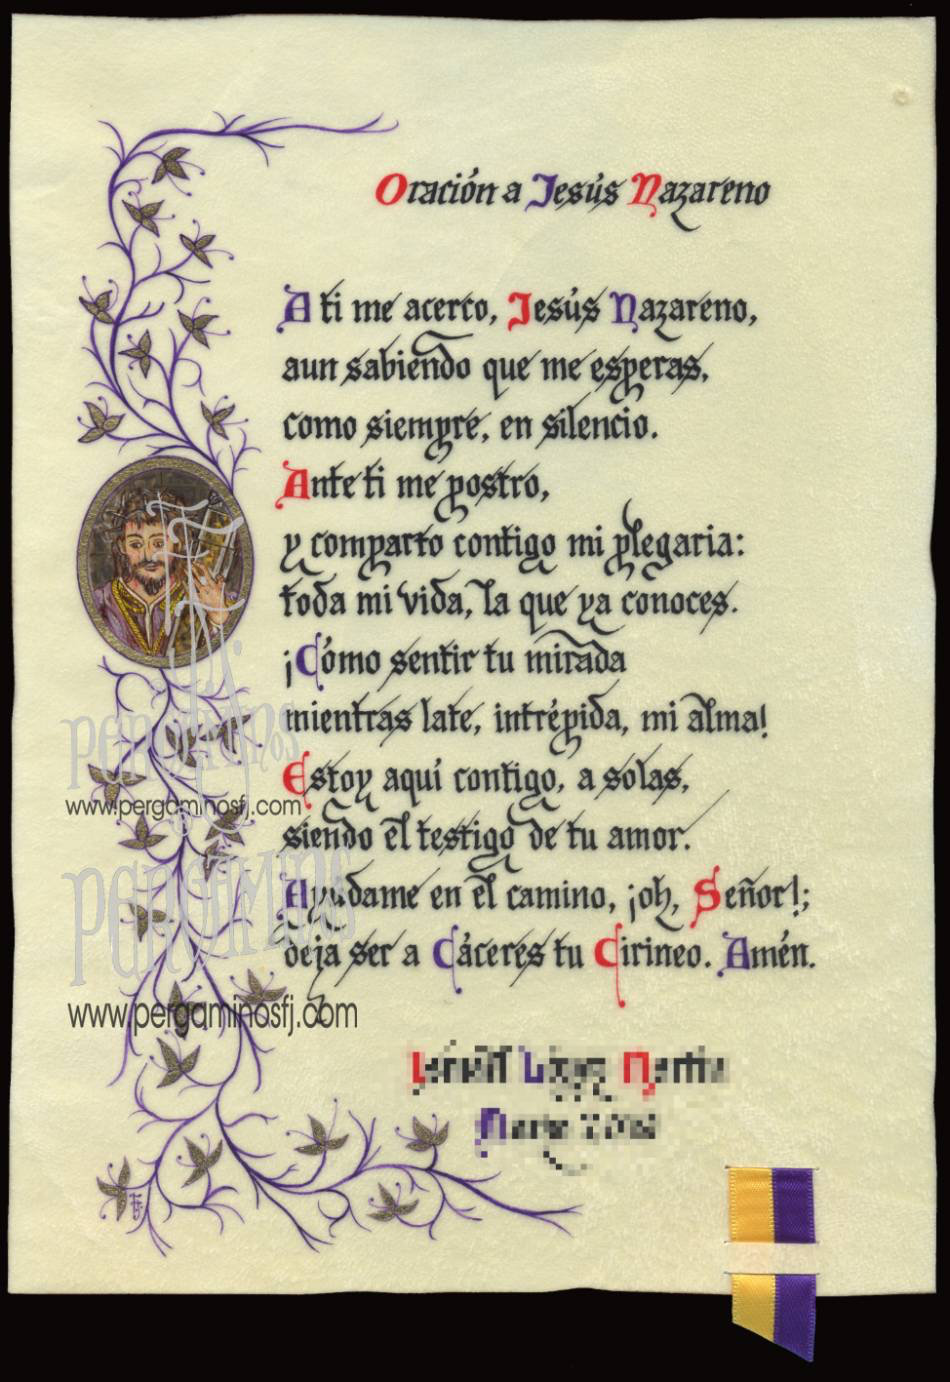 Oración a Jesús Nazareno
A ti me acerco, Jesús Nazareno,
aun sabiendo que me esperas,
como siempre, en silencio.
Ante ti me postro,
y comparto contigo mi plegaria:
toda mi vida, la que ya conoces.
¡Cómo sentir tu mirada
mientras late, intrépida, mi alma!
Estoy aquí contigo, a solas,
siendo el testigo de tu amor.
Ayúdame en el camino, ¡oh, Señor!;
deja ser a Cáceres tu Cirineo. Amén.
PERGAMINOS
www.pergaminosfj.com
PERGAMINOS
www.pergaminosfj.com